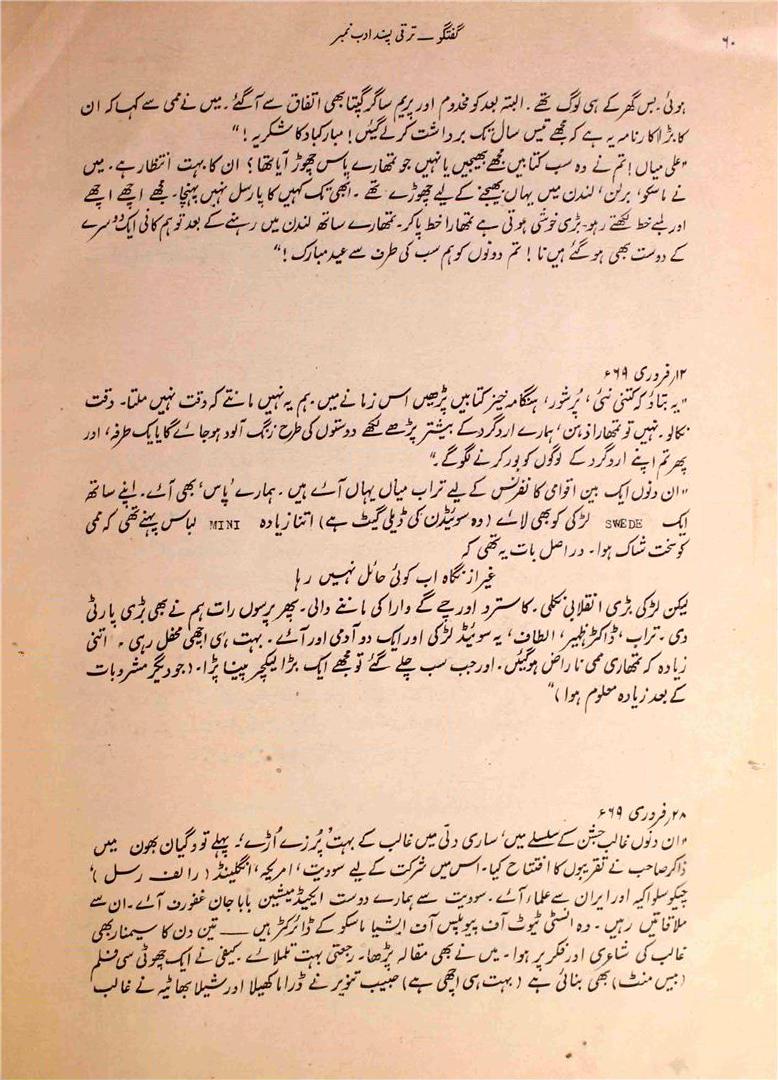 ۶۰
گفتگو — ترقی پسند ادب نمبر
ہوئی۔ بس گھر کے ہی لوگ تھے۔ البتہ بعد کو مخدوم اور پریم ساگر گپتا بھی اتفاق سے آگئے۔ میں نے ممی سے کہا کہ ان
کا بڑا کارنامہ یہ ہے کہ مجھے تیس سال تک برداشت کرلے گئیں! مبارکباد کا شکریہ!"
"علی میاں! تم نے وہ سب کتابیں مجھے بھیجیں یا نہیں جو تمھارے پاس چھوڑ آیا تھا؟ ان کا بہت انتظار ہے۔ میں
نے ماسکو، برلن، لندن میں یہاں بھیجنے کے لیے چھوڑے تھے۔ ابھی تک کہیں کا پارسل نہیں پہنچا۔ مجھے اچھے اچھے
اور لمبے خط لکھتے رہو۔ بڑی خوشی ہوتی ہے تمھارا خط پا کر۔ تمھارے ساتھ لندن میں رہنے کے بعد تو ہم کافی ایک دوسرے
کے دوست بھی ہو گئے ہیں نا! تم دونوں کو ہم سب کی طرف سے عید مبارک!"
۱۲ر فروری ۶۹ء
"یہ بتاؤ کہ کتنی نئی، پُرشور، ہنگامہ خیز کتابیں پڑھیں اس زمانے میں۔ ہم یہ نہیں مانتے کہ وقت نہیں ملتا۔ وقت
نکالو۔ نہیں تو تمھارا ذہن، ہمارے اردگرد کے بیشتر پڑھے لکھے دوستوں کی طرح زنگ آلود ہو جائے گا یا یک طرفہ، اور
پھر تم اپنے اردگرد کے لوگوں کو بور کرنے لگو گے۔"
"ان دنوں ایک بین اقوامی کانفرنس کے لیے تراب میاں یہاں آئے ہیں۔ ہمارے 'پاس' بھی آئے۔ اپنے ساتھ
ایک SWEDE لڑکی کو بھی لائے (وہ سوئیڈن کی ڈیلی گیٹ ہے) اتنا زیادہ MINI لباس پہنے تھی کہ ممی
کو سخت شاک ہوا۔ دراصل بات یہ تھی کہ
غیر از نگاہ اب کوئی حائل نہیں رہا
لیکن لڑکی بڑی انقلابی نکلی۔ کاسترو اور چے گے وارا کی ماننے والی۔ پھر پرسوں رات ہم نے بھی بڑی پارٹی
دی۔ تراب، ڈاکٹر ظہیر، الطاف، یہ سوئیڈ لڑکی اور ایک دو آدمی اور آئے۔ بہت ہی اچھی محفل رہی۔ اتنی
زیادہ کہ تمھاری ممی ناراض ہو گئیں۔ اور جب سب چلے گئے تو مجھے ایک بڑا لیکچر پینا پڑا۔ (جو دیگر مشروبات
کے بعد زیادہ معلوم ہوا)"
۲۸ر فروری ۶۹ء
"ان دنوں غالب جشن کے سلسلے میں، ساری دلّی میں غالب کے بہت پُرزے اُڑے۔ پہلے تو وگیان بھون میں
ذاکر صاحب نے تقریبوں کا افتتاح کیا۔ اس میں شرکت کے لیے سوویت، امریکہ، انگلینڈ (رالف رسل)،
چیکوسلواکیہ اور ایران سے علماء آئے۔ سوویت سے ہمارے دوست ایکیڈمیشین باباجان غفورف آئے۔ ان سے
ملاقاتیں رہیں۔ وہ انسٹی ٹیوٹ آف پیوپلس آف ایشیا ماسکو کے ڈائرکٹر ہیں — تین دن کا سیمنار بھی
غالب کی شاعری اور فکر پر ہوا۔ میں نے بھی مقالہ پڑھا۔ رجعتی بہت تلملائے۔ کیفی نے ایک چھوٹی سی فلم
(بیس منٹ) بھی بنائی ہے (بہت ہی اچھی ہے) حبیب تنویر نے ڈراما کھیلا اور شیلا بھاٹیہ نے غالب